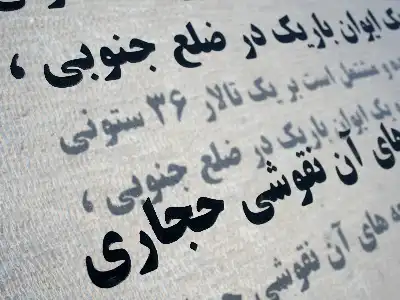 یک ایوان باریک در ضلع جنوبی ،
و مشتمل است بر یک تالار ۳۶ ستونی
یک ایوان باریک در ضلع جنوبی ،
های آن نقوشی حجاری
های آن نقوشی